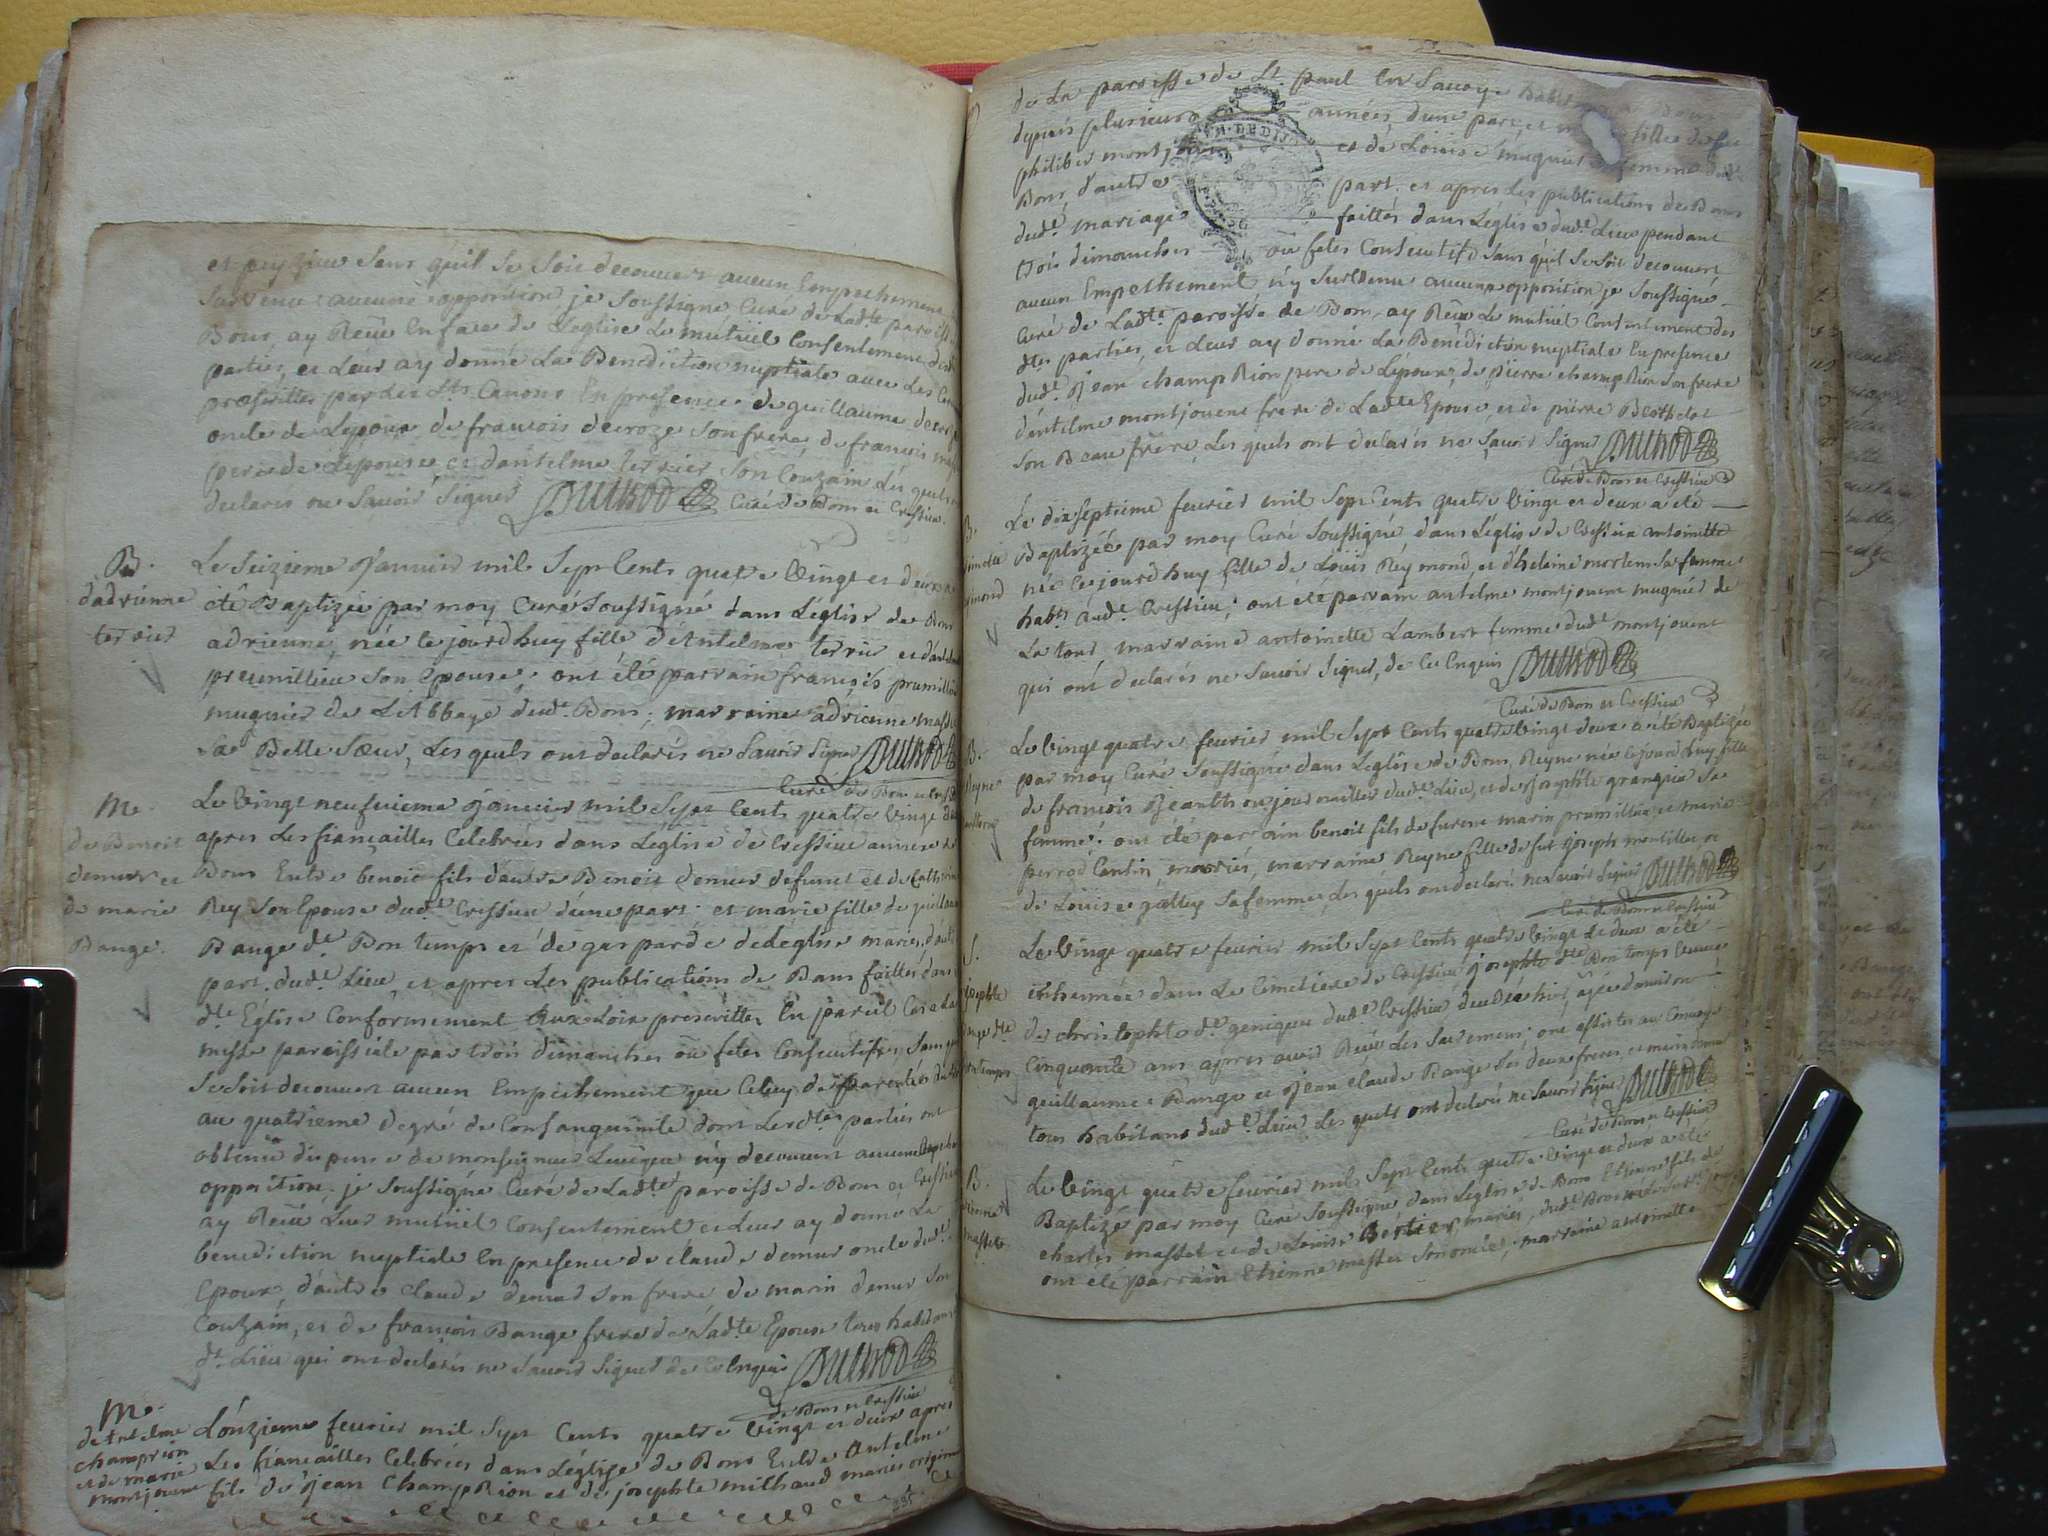 et peyzieu sans qu'il se soit decouvert aucun Empechement
survenu aucune opposition je soussigné Curé de Ladte paroisse
Bons, ay Reçu En face de L'eglise Le mutuel Consentement desd
parties, et Leur ay donné La Benediction nuptiale avec Les
prescrittes par les Sts Canons En presence de guillaume decroz
oncle de L'epoux de francois decroze son frere de francois
pere de L'epouse et d'antelme terrier son Couzain Les quels
declarés ne savoir signer Dutrod Curé de Bons et Cressieu.
B.
d'adrienne
terrier
Le Seizieme Janvier mil Sept Cents quatre Vingt et deux a
été Baptizée par moy Curé Soussigné dans L'eglise de Bons
adrienne, née cejourdhuy fille d'Antelme terrier et d'
premillieu son Epouse; ont été parrain françois premillieu
mugnier de L'Abbaye dudt Bons; marraine adrienne masse
sa Belle Sœur, Les quels ont declarés ne savoir signer Dutrod
Curé de Bons et Cress
M.
de Benoit
demur et
de marie
Bange.
Le Vingt neufvieme Janvier mil Sept Cents quatre Vingt deux
apres Les fiançailles Celebrées dans L'eglise de Cressieu annexe de
Bons Entre benoit fils d'autre Benoit demur defunct et de Catherine
Rey son Epouse dudt Cressieu d'une part et marie fille de guillaume
Bange dt Bon temps et de gasparde dedeglise mariés, d'autre
part, dudt Lieu, et apres Les publications de Bans faittes dans
dte Eglise Conformement aux Loix prescrittes En pareil Cas a la
messe paroissiale par trois dimanches ou fetes Consecutifs, sans qu
se soit decouvert aucun Empechement que Celuy de parenté
au quatrieme degré de Consanguinité dont Lesdtes parties ont
obtenu dispense de monseigneur L'eveque n'y decouvert aucune
opposition, je soussigné Curé de Ladte paroisse de Bons et Cressieu
ay Reçu Leur mutuel Consentement et Leur ay donné La
benediction nuptiale En presence de claude demur oncle dudt
Epoux, d'autre claude demur son frere de marin demur son
Couzain, et de françois Bange frere de Ladte Epouse tous habitans
dt Lieu qui ont declarés ne savoir signer de ce Enquis Dutrod
de Bons et Cressieu
M.
de Antelme
champrion
et de marie
montjouvent
L'onzieme fevrier mil Sept Cents quatre Vingt et deux apres
Les fiançailles Celebrées dans L'eglise de Bons Entre Antelme
fils de Jean ChampRion et de josephte milhaud mariés origine
de La paroisse de St paul En Savoye
depuis plusieurs années, d'une part, et fille de feu
philiber montjouvent et de Louise mugnier femme dudt
Bons d'autre part. et apres Les publications de Bans
dudt mariage faittes dans L'eglise dudt Lieu pendant
trois dimanches ou fetes Consecutifs sans qu'il se soit decouvert
aucun Empechement n'y Survenu aucune opposition je soussigné
Curé de Ladte paroisse de Bons, ay Reçu Le mutuel Consentement des
dtes parties, et Leur ay donné La Benediction nuptiale En presence
dudt Jean champRion pere de L'epoux, de pierre champRion son frere
d'antelme montjouvent frere de Ladte Epouse, et de pierre Berthelet
son Beau frere, Les quels ont declarés ne Savoir Signer Dutrod
Curé de Bons et Cressieu
B.
Le dix septieme fevrier mil Sept Cents quatre Vingt et deux a été
Baptizée par moy Curé Soussigné dans L'eglise de Cressieu antoinette
née cejourdhuy fille de Louis Reymond, et d'helaine mortem sa femme
habts audt Cressieu; ont été parrain antelme montjouvent mugnier de
La tour, marraine antoinette Lambert femme dudt montjouvent
qui ont declarés ne Savoir signer, de ce Enquis Dutrod
Curé de Bons et Cressieu
B.
Reyne
Le Vingt quatre fevrier mil Sept Cents quatre Vingt deux a été Baptizée
par moy Curé Soussigné dans L'eglise de Bons, Reyne née cejourdhuy fille
de françois Jeantton journaillier dudt Lieu, et de josephte grangier sa
femme: ont été parrain benoit fils de furent marin premillieu et marie
perrod Cantin, mariés, marraine Reyne fille de fut joseph montillet et
de Louise galley sa femme, Les quels ont declaré ne savoir signer Dutrod
Curé de Bons et Cressieu
S.
josephte
Bange dte
Bontemps
Le Vingt quatre fevrier mil Sept Cents quatre Vingt et deux a été
inhumée dans Le Cimetiere de Cressieu josephte dte Bon temps Veuve
de christophle dt genique dudt Cressieu decedée hier, agée d'environ
Cinquante ans apres avoir Reçu Les Sacremens: ont assistés au Convoye
guillaume Bange et Jean claude Bange ses deux freres,
tous habitans dudt Lieu Les quels ont declaré ne savoir signer Dutrod
Curé de Bons et Cressieu
B.
Etienne
massot
Le Vingt quatre fevrier mil Sept Cents quatre Vingt et deux a été
Baptizé par moy Curé Soussigné dans L'eglise de Bons Etienne fils de
charles massot et de Louise Bertier mariés, dudt Bons
ont été parrain Etienne massot son oncle, marraine antoinette